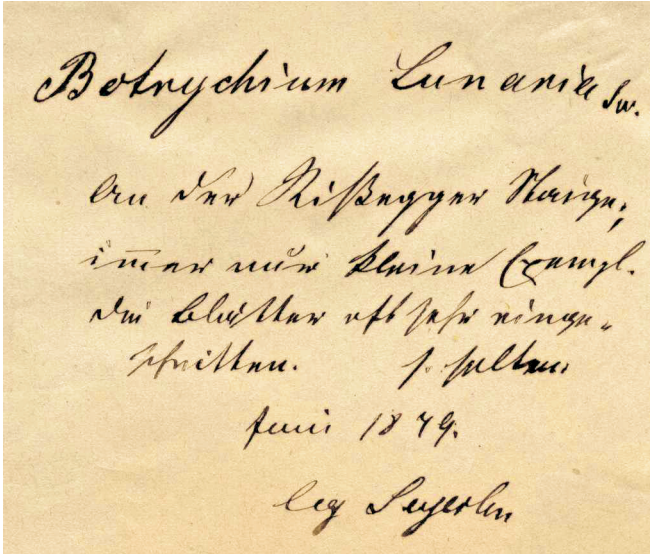 Botrychium Lunaria Sw.
An der Rißegger Staige,
immer nur kleine Exempl.
die Blätter oft sehr einge-
schnitten. s. selten.
Juni 1879.
leg